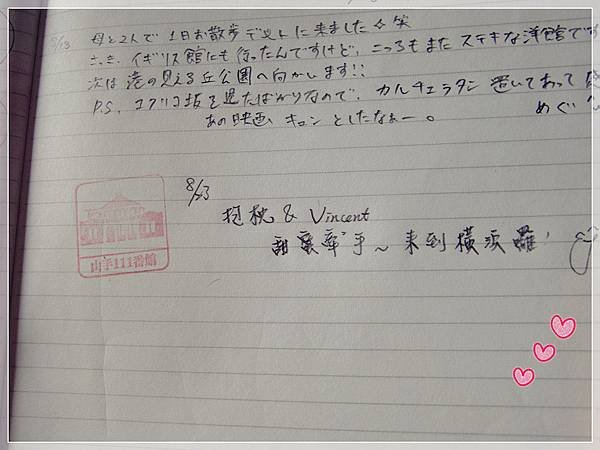 8/13 母と2人で 1日お散歩デートに来ました☆笑
さっき、イギリス館にも行ったんですけど、こっちもまた ステキな洋館です
次は港の見える丘公園へ向かいます!!
P.S. コクリコ坂を見たばかりなので、カルチェラタン 置いてあって
あの映画、キュンとしたなぁー。 めぐ
8/13
& Vincent
甜蜜牽手~来到橫須羅!
山手111番館